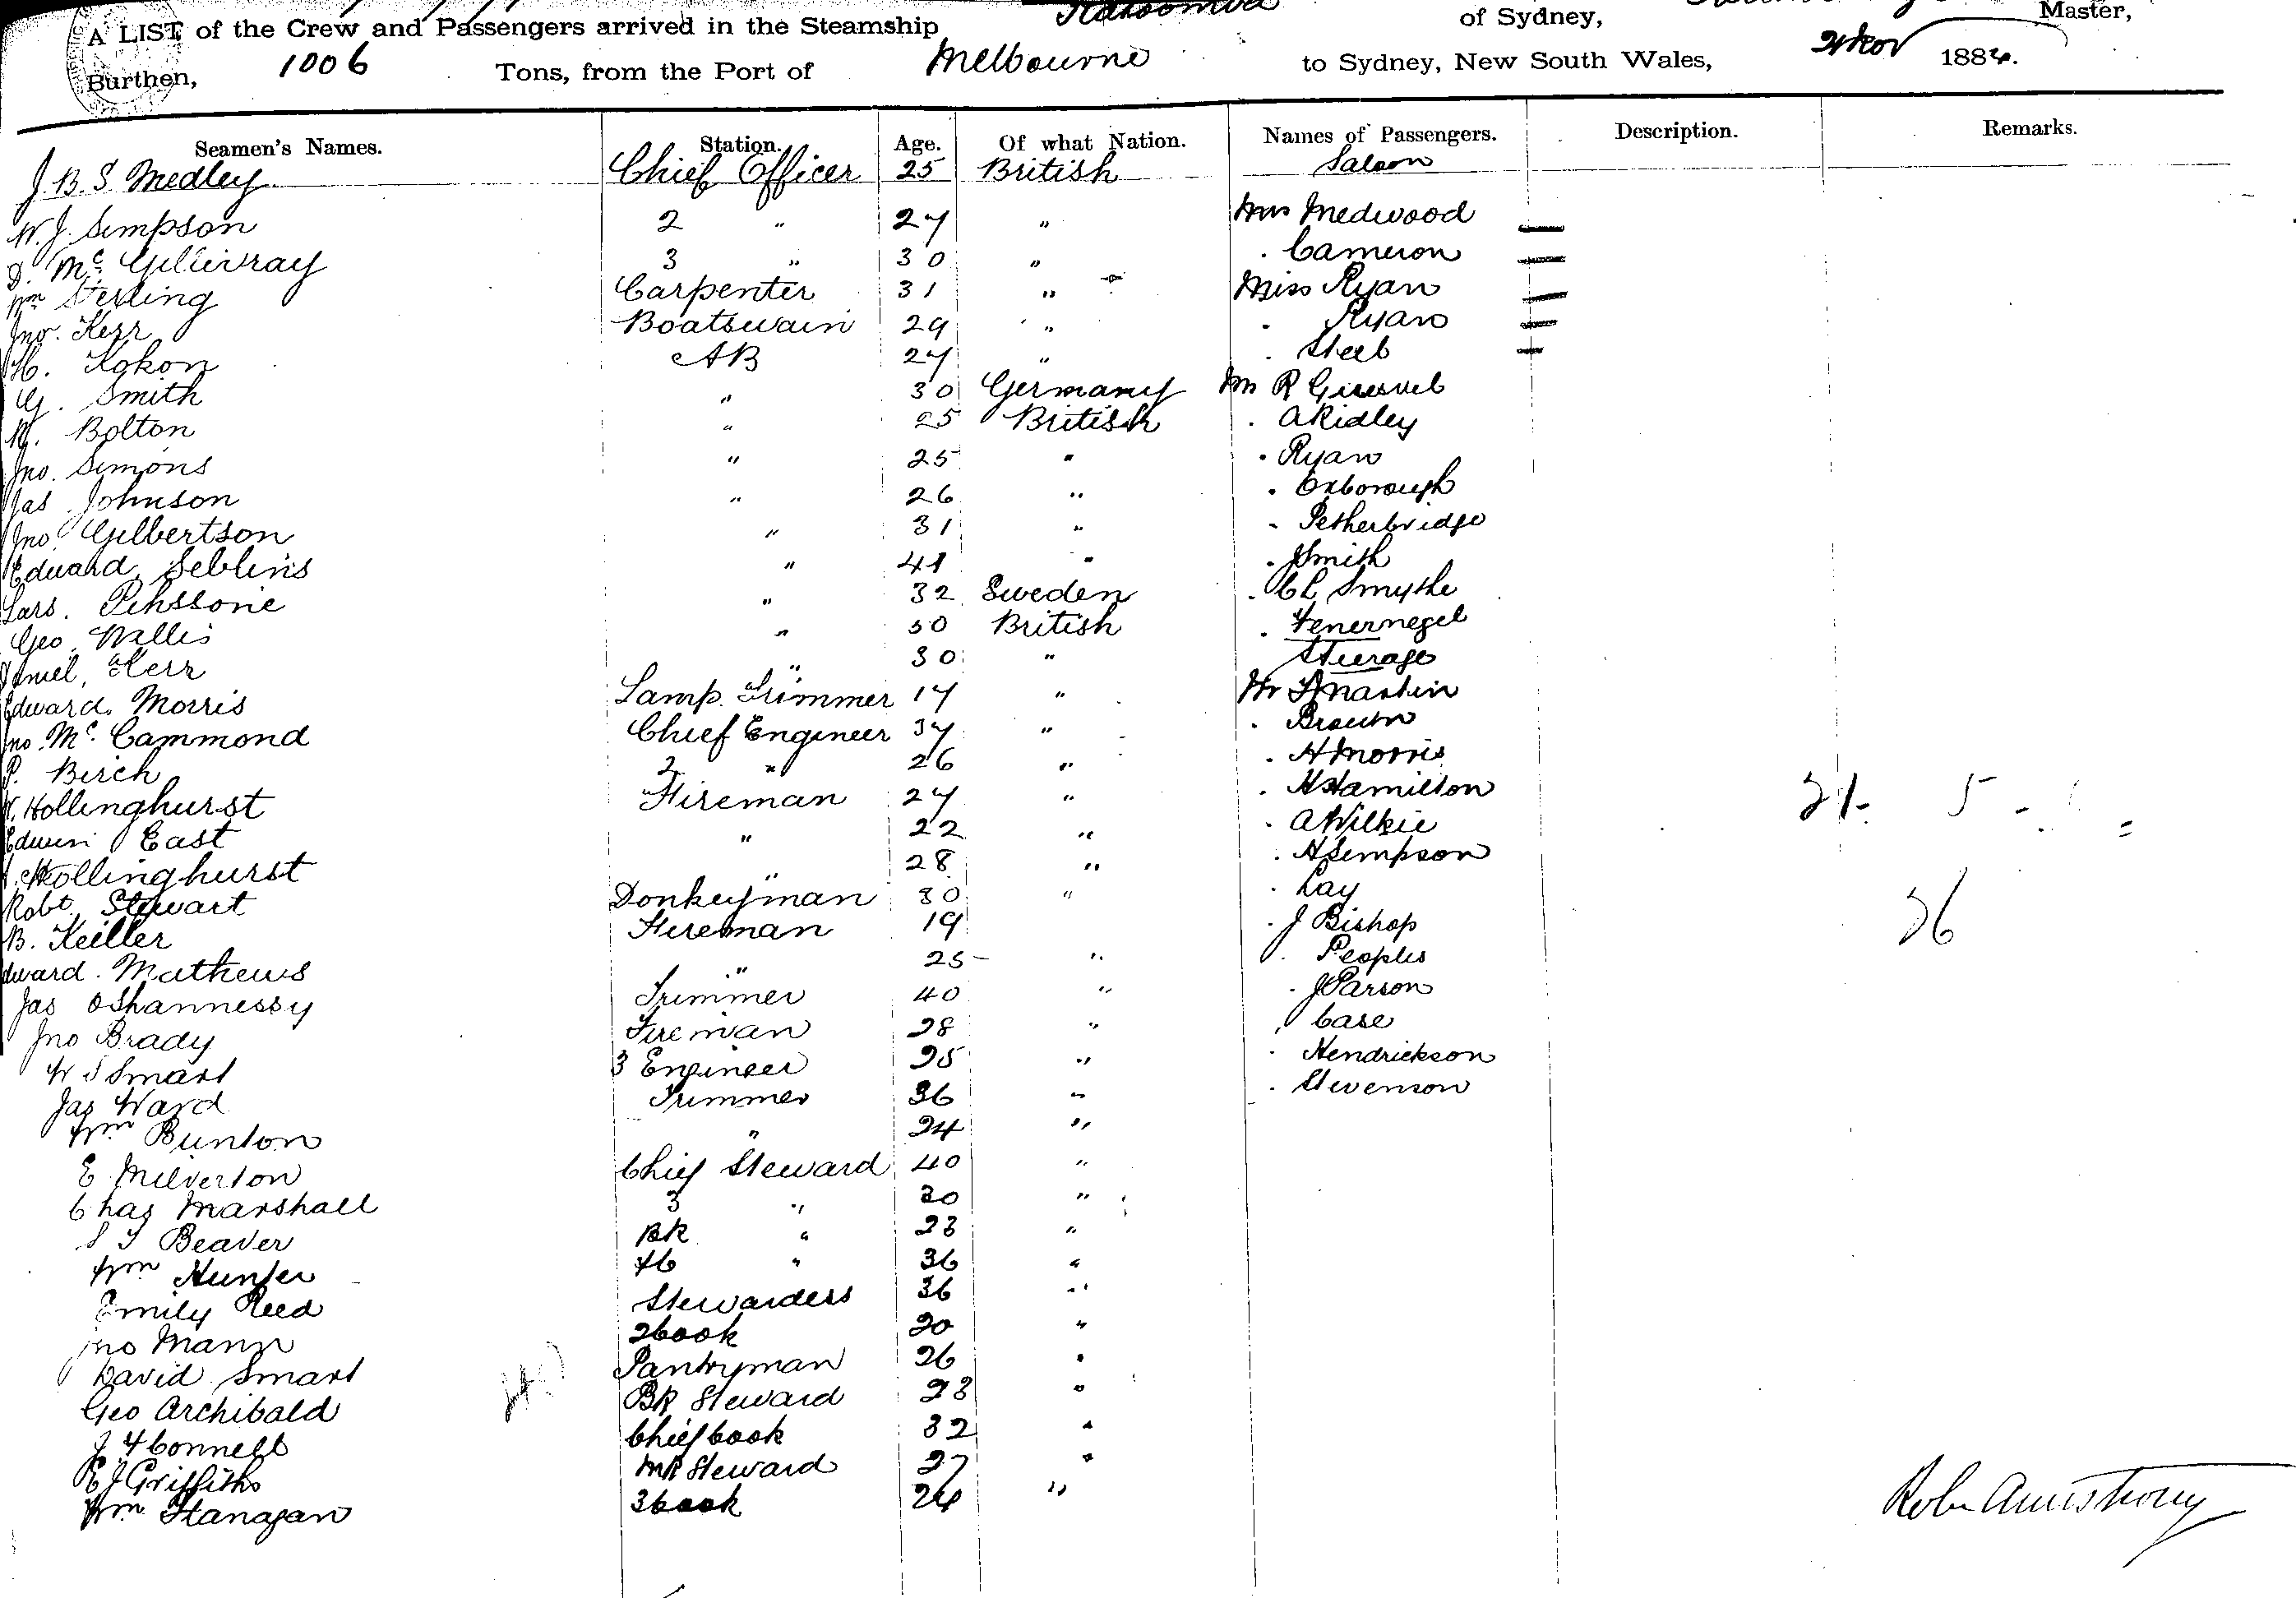 A LIST of the Crew and Passengers arrived in the Steamship of Sydney, Master,
Burthen, 1006 Tons, from the Port of Melbourne to Sydney, New South Wales, Nov 1884.
Seamen's Names. Station. Age. Of what Nation. Names of Passengers. Description. Remarks.
J. B. S Medley Chief Officer 25 British Saloon
W. J. Simpson 2 " 27 " Mrs Medwood
D. Mc Gillivray 3 " 30 " . Cameron
Wm Sterling Carpenter 31 " Miss Ryan
Jno. Kerr Boatswain 29 " . Ryan
H. Kokon AB 27 " . Steel
G. Smith " 30 Germany Mr R
Bolton " 25 British . A Ridley
Jno. Simons " 25 " . Ryan
Jas Johnson " 26 " . Oxborough
Jno. Gilbertson " 31 " . Petherbridge
Edward Seblins " 41 " . J Smith
Lars. " 32 Sweden . C L Smythe
Geo. Wallis " 50 British . Fenernegel
Kerr " 30 " Steerage
Edward Morris Lamp Trimmer 17 " Mr Martin
Jno. Mc Cammond Chief Engineer 37 " . Brown
P. Birch 2 " 26 " . H Morris
W. Hollinghurst Fireman 27 " . H Hamilton
Edwin East " 22 " . A Wilkie
Hollinghurst " 28 " . H Simpson
Robt. Stewart Donkeyman 30 " . Lay
B. Keiller Fireman 19 . J Bishop
Edward Mathews " 25 " . Peoples
Jas OShannessy Trimmer 40 " . J Parson
Jno Brady Fireman 28 " . Case
W S Smart 3 Engineer 25 " . Hendrickson
Jas Ward Trimmer 36 " . Stevenson
Wm Bunton " 24 "
E Milverton Chief Steward 40 "
Chas Marshall 3 " 30 "
S J Beaver BK " 23 "
Wm Hunter " 36 "
Emily Reed Stewardess 36 "
Jno Mann 2 Cook 20 "
David Smart Pantryman 26 "
Geo Archibald BR Steward 23 "
J F Connell Chief Cook 32 "
E J Griffiths MR Steward 27 "
Wm Flanagan 3 Cook 24 "
21 - 5 -
36
Robt Armstrong